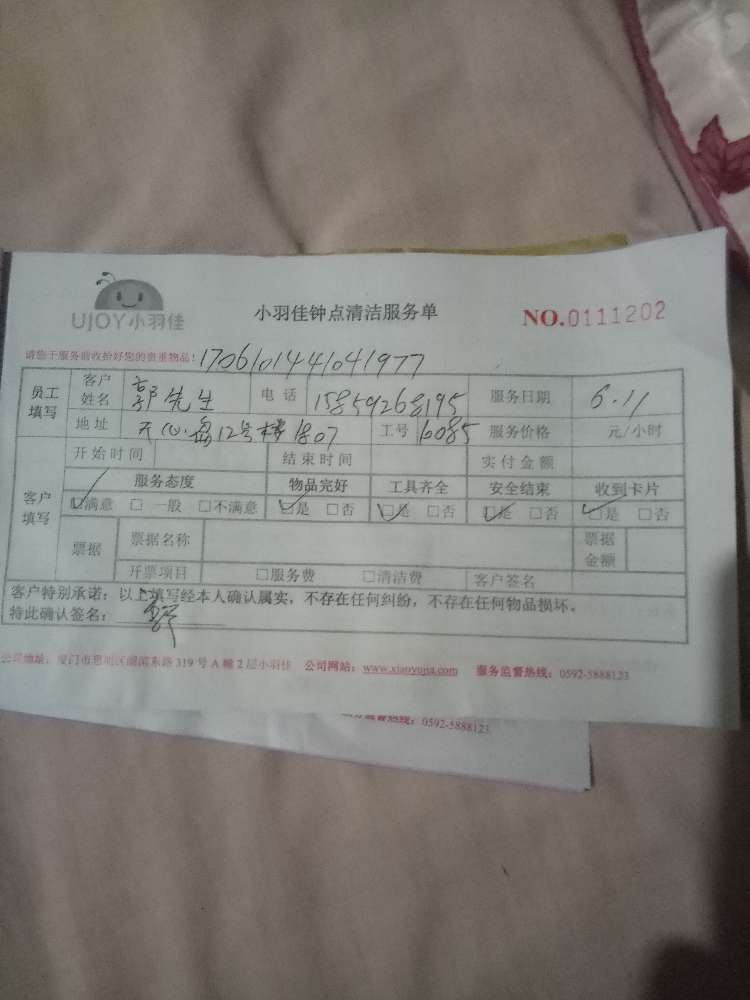 UJOY小羽佳
小羽佳钟点清洁服务单
NO.0111202
请您于服务前收拾好您的贵重物品!
1706101441041977
员工填写 客户姓名 郭先生 电话 15859268195 服务日期 6.11
地址 天心盘12号楼1807 工号 16085 服务价格 元/小时
开始时间 结束时间 实付金额
客户填写 服务态度 物品完好 工具齐全 安全结束 收到卡片
☑满意 □一般 □不满意 ☑是 □否 ☑是 □否 ☑是 □否 ☑是 □否
票据 票据名称 票据金额
开票项目 □服务费 □清洁费 客户签名
客户特别承诺:以上填写经本人确认属实,不存在任何纠纷,不存在任何物品损坏。
特此确认签名:
公司地址:厦门市思明区湖滨东路319号A幢2层小羽佳 公司网站:www.xiaoyujia.com 服务监督热线:0592-5888123
服务监督热线:0592-5888123